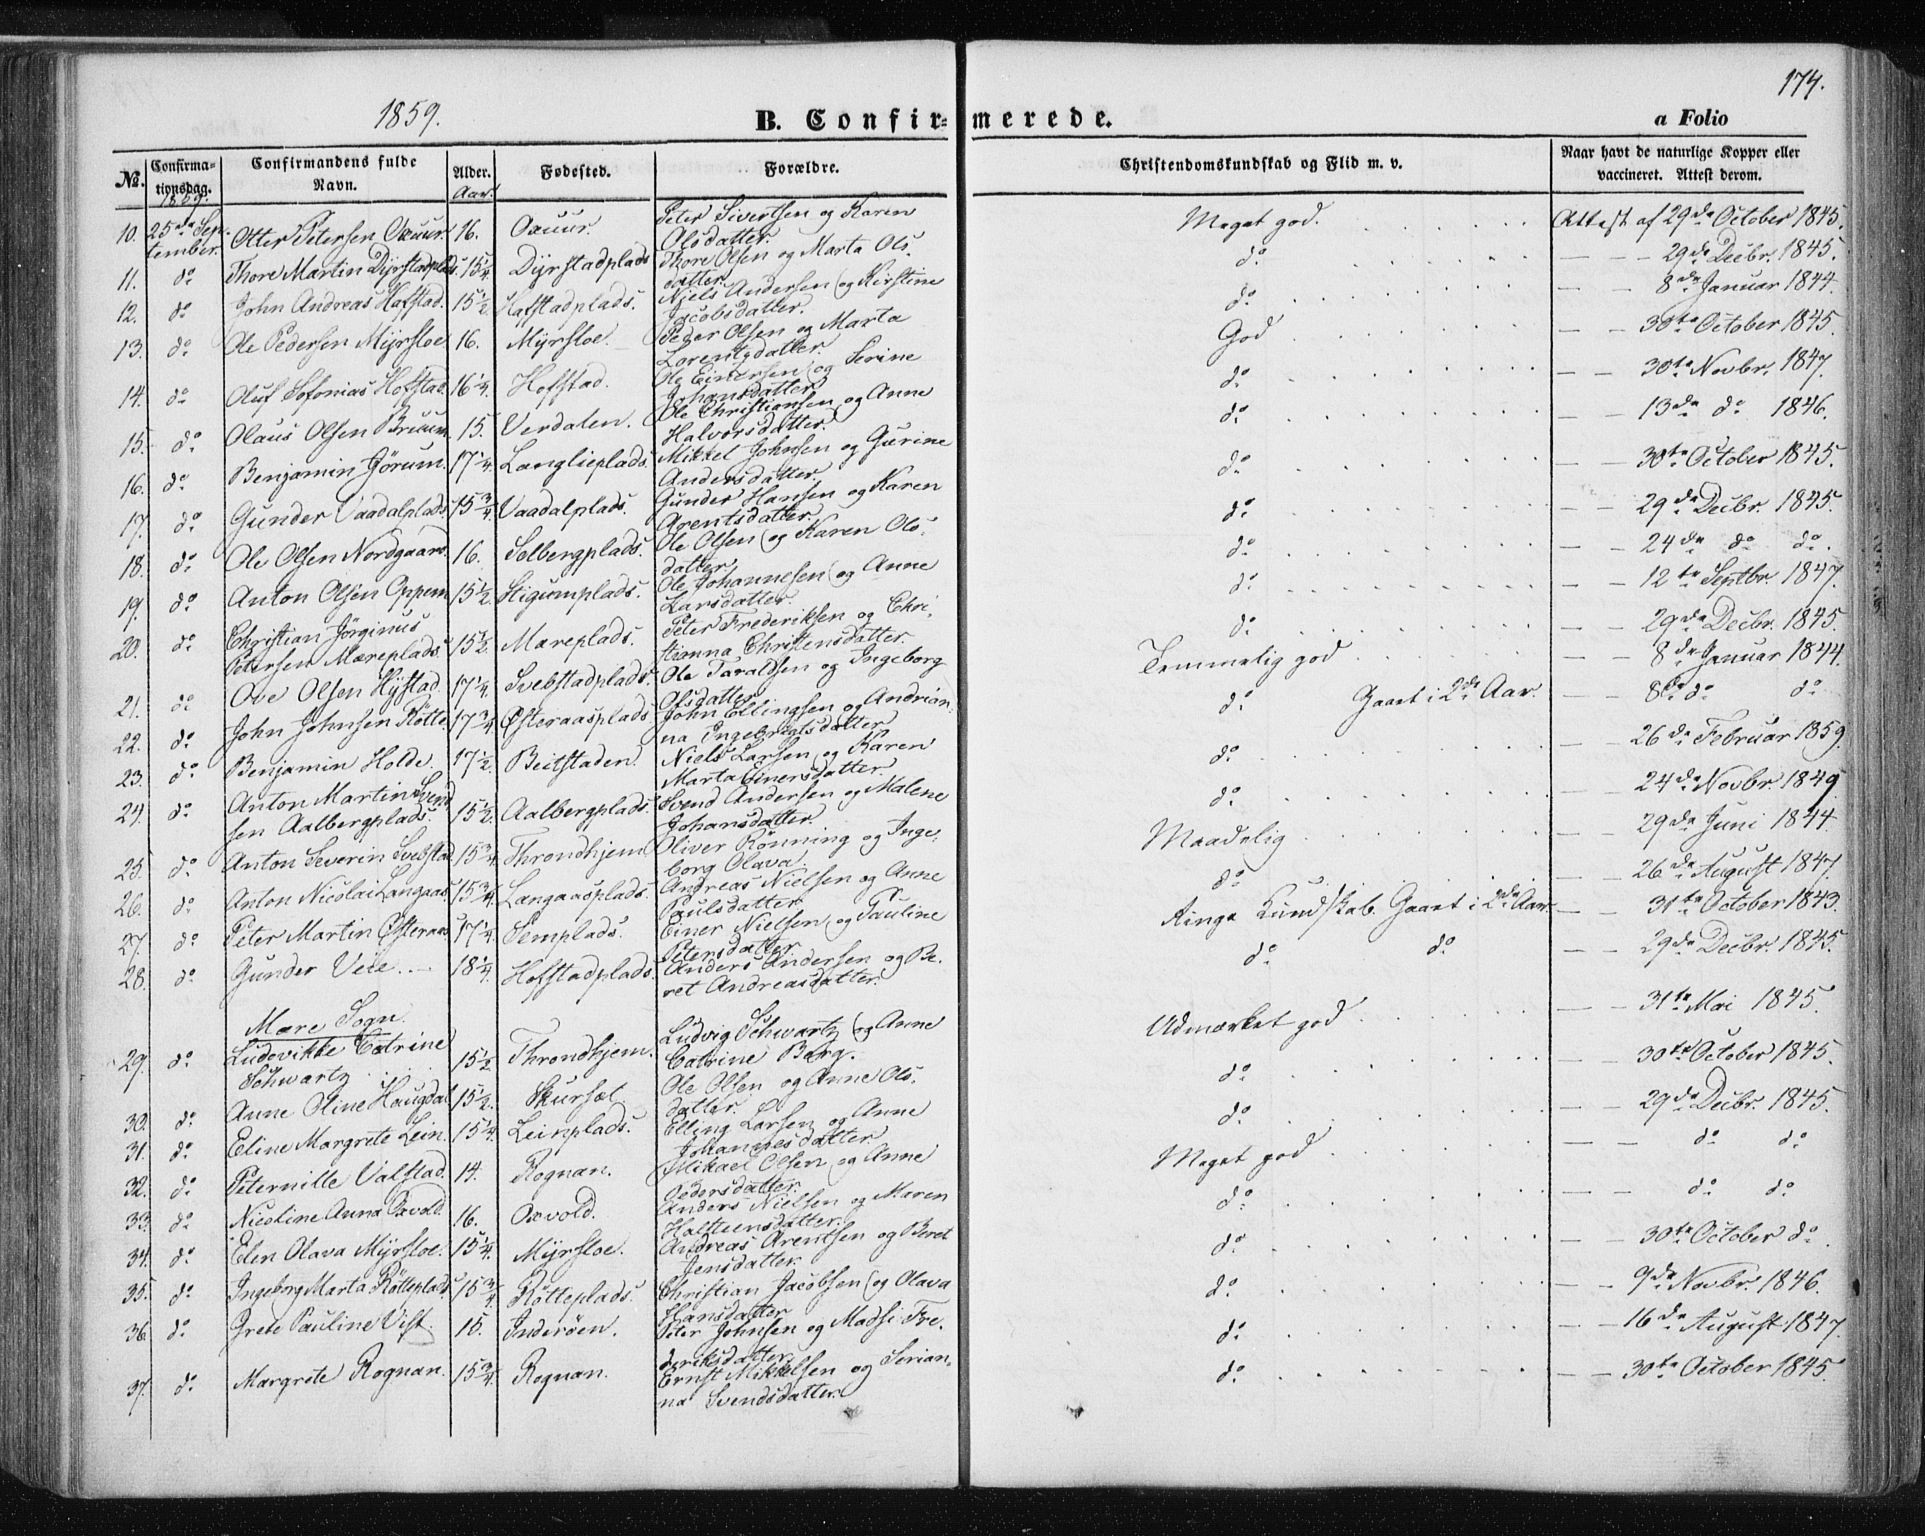 174.
1859.
B. Confir=merede.
a Folio
No. Confirmationsdag. Confirmandens fulde Navn. Alder. Fødested. Forældre. Christendomskundskab og Flid m. v. Naar havt de naturlige Kopper eller vaccineret. Attest derom.
1859. Aar.
10. 25de September. Otter Petersen Oxuur. 16. Oxuur. Peter Sivertsen og Karen Olsdatter. Meget god. Attest af 29de October 1845.
11. do Thore Martin Dyrstadplads. 15 1/4. Dyrstadplads Thore Olsen og Marta Olsdatter. do — — 29de Decbr. 1845.
12. do John Andreas Hofstad. 15 1/2. Hofstadplads. Niels Andersen og Kirstine Jacobsdatter. do — — 8de Januar 1844.
13. do Ole Pedersen Myrsloe 16. Myrsloe. Peder Olsen og Marta Lorentsdatter. God — — 30te October 1845.
14. do Oluf Sofonias Hofstad. 16 1/4. Hofstad. Ole Einersen og Serine Johansdatter. do — — 30te Novbr. 1847.
15. do Olaus Olsen Bruum. 15. Verdalen. Ole Christiansen og Anne Halvorsdatter. do — — 13de do 1846.
16. do Benjamin Gjørum. 17 1/4. Langlieplads. Mikkel Johnsen og Gurine Andersdatter. do — — 30te October 1845.
17. do Gunder Vaadalplads. 15 3/4. Vaadalplads. Gunder Hansen og Karen Arentsdatter. do — — 29de Decbr. 1845.
18. do Ole Olsen Nordgaard. 16. Selbergplads. Ole Olsen og Karen Olsdatter. do — — 24de do do.
19. do Anton Olsen Oppem 15 1/2. Stigumplads. Ole Johannesen og Anne Larsdatter. do — — 12te Septbr. 1847.
20. do Christian Jørginus Petersen Mæreplads. 15 1/2. Mæreplads. Peter Frederiksen og Christianna Christensdatter. do — — 29de Decbr. 1845.
21. do Ove Olsen Hystad. 17 1/4. Svebstadplads. Ole Taraldsen og Ingeborg Olsdatter. Temmelig god — — 8de Januar 1844.
22. do John Johnsen Røtte. 17 3/4. Østeraasplads John Ellingsen og Andrianna Ingebrigtsdatter do Gaaet i 2det Aar. — — 8de do do
23. do Benjamin Holde. 17 1/2. Beitstaden. Niels Larsen og Karen Marta Einersdatter. do — — 26de Februar 1859.
24. do Anton Martin Svendsen Aalbergplads. 15 1/2. Aalbergplads. Svend Andersen og Malene Johansdatter. do — — 24de Novbr. 1849
25. do Anton Severin Svebstad 15 3/4. Throndhjem Oliver Rønning og Ingeborg Olava. Maadelig — — 29de Juni 1844.
26. do Anton Nicolai Langaas. 15 3/4. Langaasplads. Andreas Nielsen og Anne Paulsdatter. do — — 26de August 1847.
27. do Peter Martin Østeraas 17 1/4. Semplads. Einer Nielsen og Pauline Petersdatter. Ringe Kundskab. Gaaet i 2det Aar — — 31te October 1843.
28. do Gunder Veie. 18 1/4. Hofstadplads. Anders Andersen og Beret Andreasdatter. do do — — 29de Decbr. 1845.
Mære Sogn.
29. do Ludovikke Catrine Schwartz 15 1/2. Throndhjem. Ludvig Schwartz og Anne Catrine Berg. Udmærket god — — 31te Mai 1845.
30. do Anne Oline Haugdal 15 1/2. Skursæt Ole Olsen og Anne Olsdatter. do — — 30te October 1845.
31. do Eline Margrete Lein. 15 1/4. Leinplads. Elling Larsen og Anne Johannesdatter. do — — 29de Decbr. 1845.
32. do Peternille Valstad. 14. Rognan. Mikael Olsen og Anne Pedersdatter. Meget god — — do do
33. do Nicoline Anna Oxvold. 16. Oxvold. Anders Nielsen og Maren Halsteensdatter. do — — do do
34. do Elen Olava Myrsloe. 15 1/4. Myrsloe. Andreas Arentsen og Beret Jensdatter. do — — 30te October do.
35. do Ingeborg Marta Røtteplads. 15 3/4. Røtteplads. Christian Jacobsen og Olava Hansdatter. do — — 9de Novbr. 1846.
36. do Grete Pauline Vist. 15. Inderøen. Peter Johnsen og Madsi Frederiksdatter. do — — 16de August 1847.
37. do Margrete Rognan. 15 3/4. Rognan. Ernst Mikkelsen og Serianna Svendsdatter. do — — 30te October 1845.